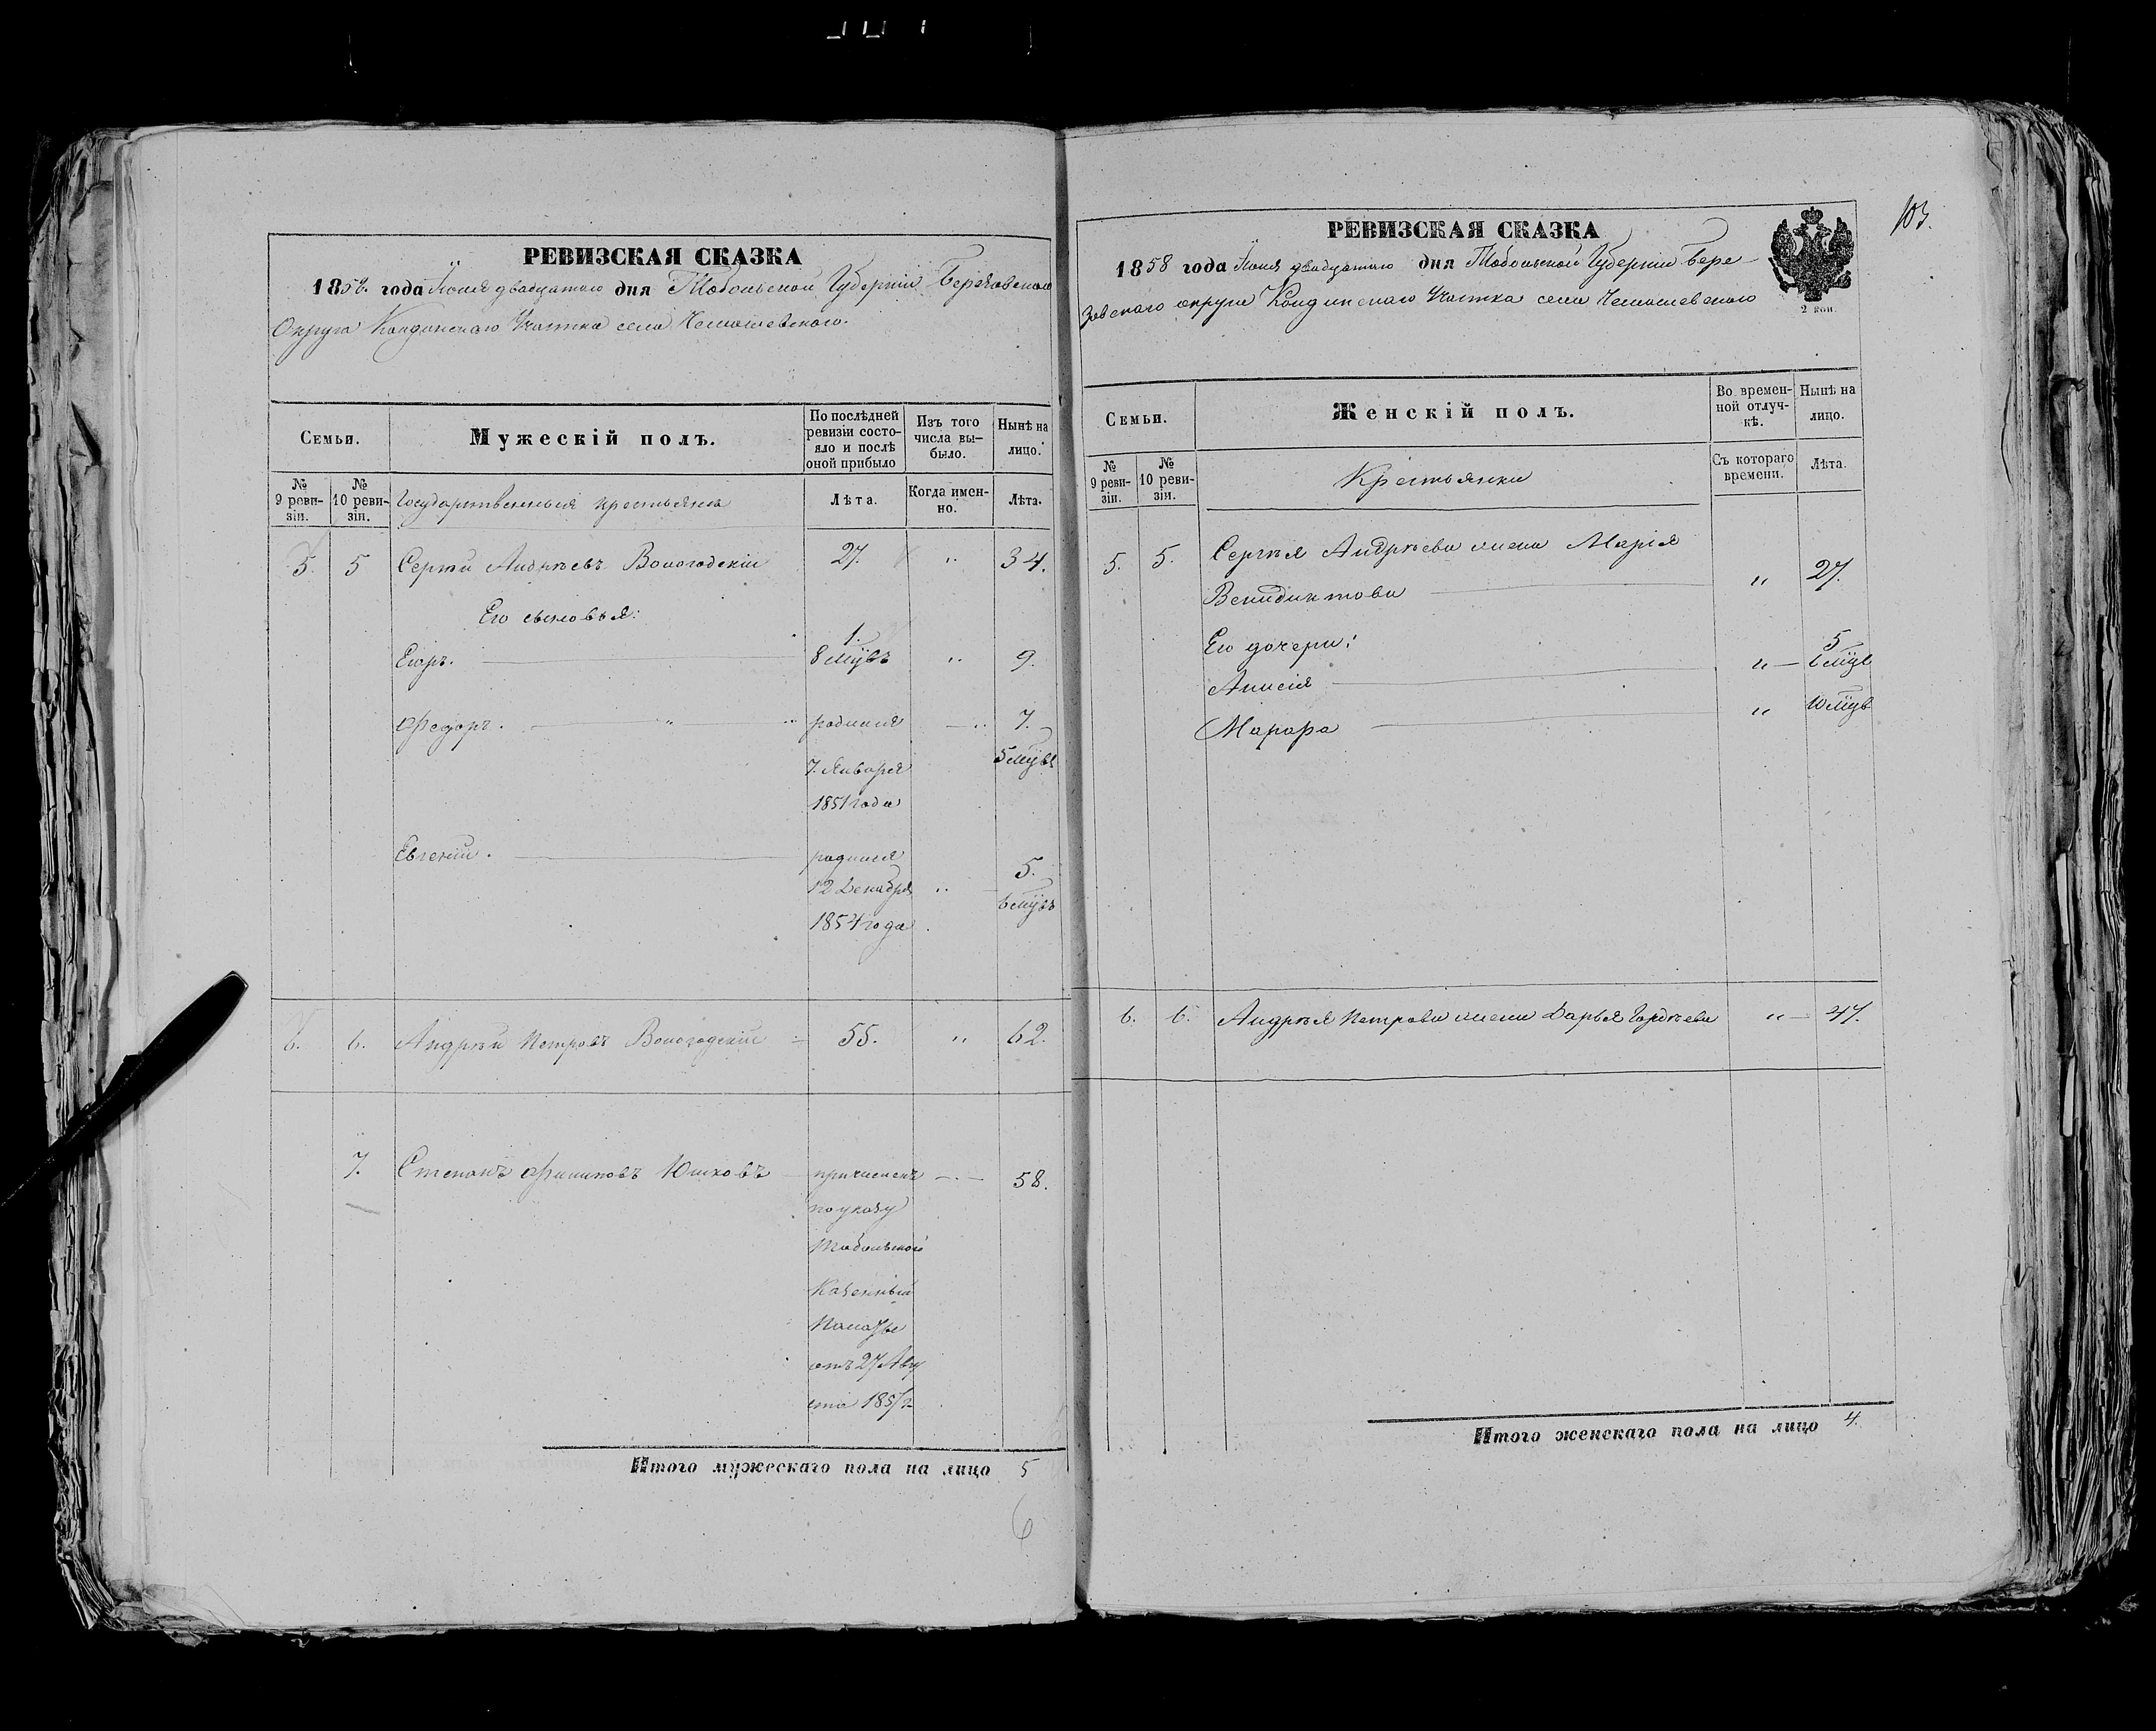 РЕВИЗСКАЯ СКАЗКА
1858 года Іюня двадцатаго дня Тобольской Губерніи Березовскаго
Округа Кондинскаго Участка села Чемашевскаго.
Семьи.
Мужескій полъ.
По послѣдней ревизіи состо-
яло и послѣ
оной прибыло
Изъ того
числа вы-
было.
Нынѣ на
лицо.
№
9 реви-
зіи.
№
10 реви-
зіи.
Государственныя крестьяна
Лѣта.
Когда имен-
но.
Лѣта.
5. 5 Сергѣй Андрѣевъ Вологодскій 27. " 34.
Его сыновья:
Егоръ. 1. 8 мцвъ " 9.
Федоръ. " родился " 7.
7. Января 5 мцвъ
1851 года
Евгеній. родился 5.
12 Декабря " 6 мцвъ
1854 года
6. 6. Андрѣй Петровъ Вологодскій 55. " 62.
7. Степанъ Филиповъ Юшковъ причисленъ 58.
по указу
Тобольской
Казенный
Палаты
отъ 27 Авгу
ста 185
Итого мужескаго пола на лицо 5
6
103.
РЕВИЗСКАЯ СКАЗКА
1858 года Іюня двадцатаго дня Тобольской Губерніи Бере-
зовскаго округа Кондинскаго Участка села Чемашевскаго
2 коп.
Семьи.
Женскій полъ.
Во времен-
ной отлуч-
кѣ.
Нынѣ на
лицо.
№
9 реви-
зіи.
№
10 реви-
зіи.
Крестьянки
Съ котораго
времени.
Лѣта.
5. 5. Сергѣя Андрѣева жена Марія
Венидиктова " 27.
Его дочери: 5
Анисія " 6 мцв
Марѳра " 10 мцв
6. 6. Андрѣя Петрова жена Дарья Гордѣева " 47.
Итого женскаго пола на лицо 4.